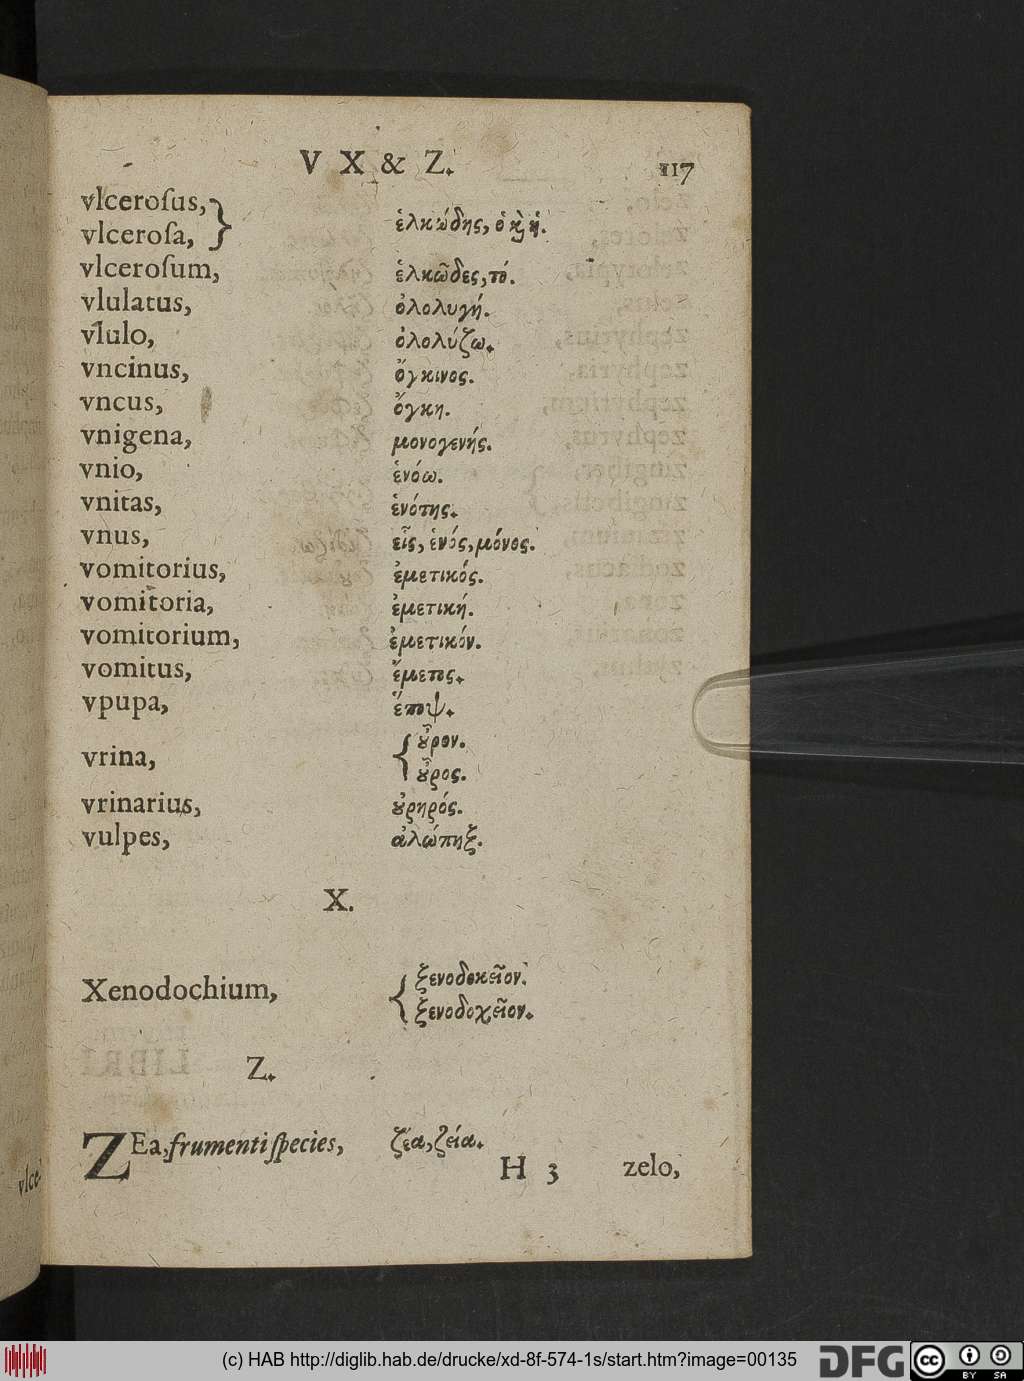 V X & Z. 117
vlceroſus,
vlceroſa, } ἑλκώδης, ὁ κ̀ ἡ.
vlceroſum, ἑλκῶδες, τό.
vlulatus, ὀλολυγή.
vlulo, ὀλολύζω.
vncinus, ὄγκινος.
vncus, ὄγκη.
vnigena, μονογενής.
vnio, ἑνόω.
vnitas, ἑνότης.
vnus, εἷς, ἑνός, μόνος.
vomitorius, ἐμετικός.
vomitoria, ἐμετική.
vomitorium, ἐμετικόν.
vomitus, ἔμετος.
vpupa, ἔποψ.
vrina, { ȣ̓͂ρον.
ȣ̓͂ρος.
vrinarius, ȣ̓ρηρός.
vulpes, ἀλώπηξ.
X.
Xenodochium, { ξενοδοκεῖον.
ξενοδοχεῖον.
Z.
ZEa, frumenti ſpecies, ζέα, ζεία.
H 3 zelo,
vlce-
LIBRI
(c) HAB http://diglib.hab.de/drucke/xd-8f-574-1s/start.htm?image=00135
DFG
cc BY SA